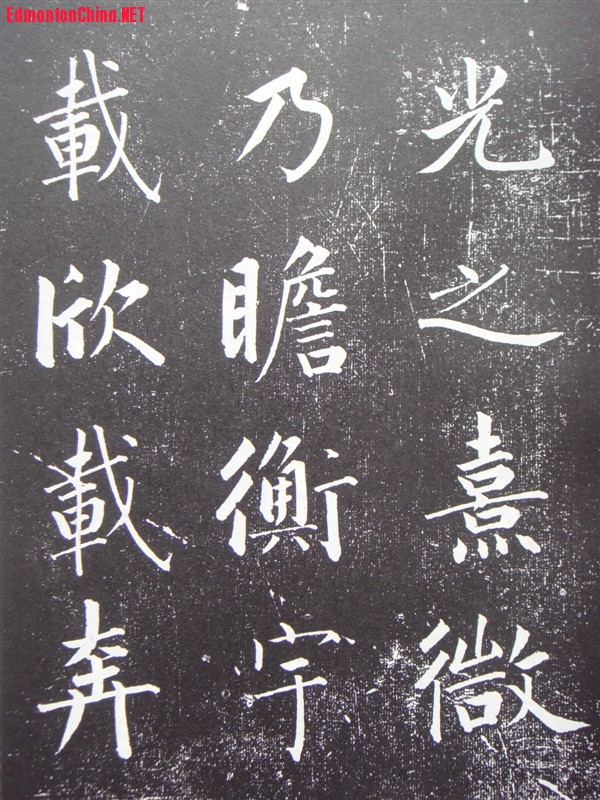 EdmontonChina.NET
光之熹微
乃瞻衡宇
載欣載奔